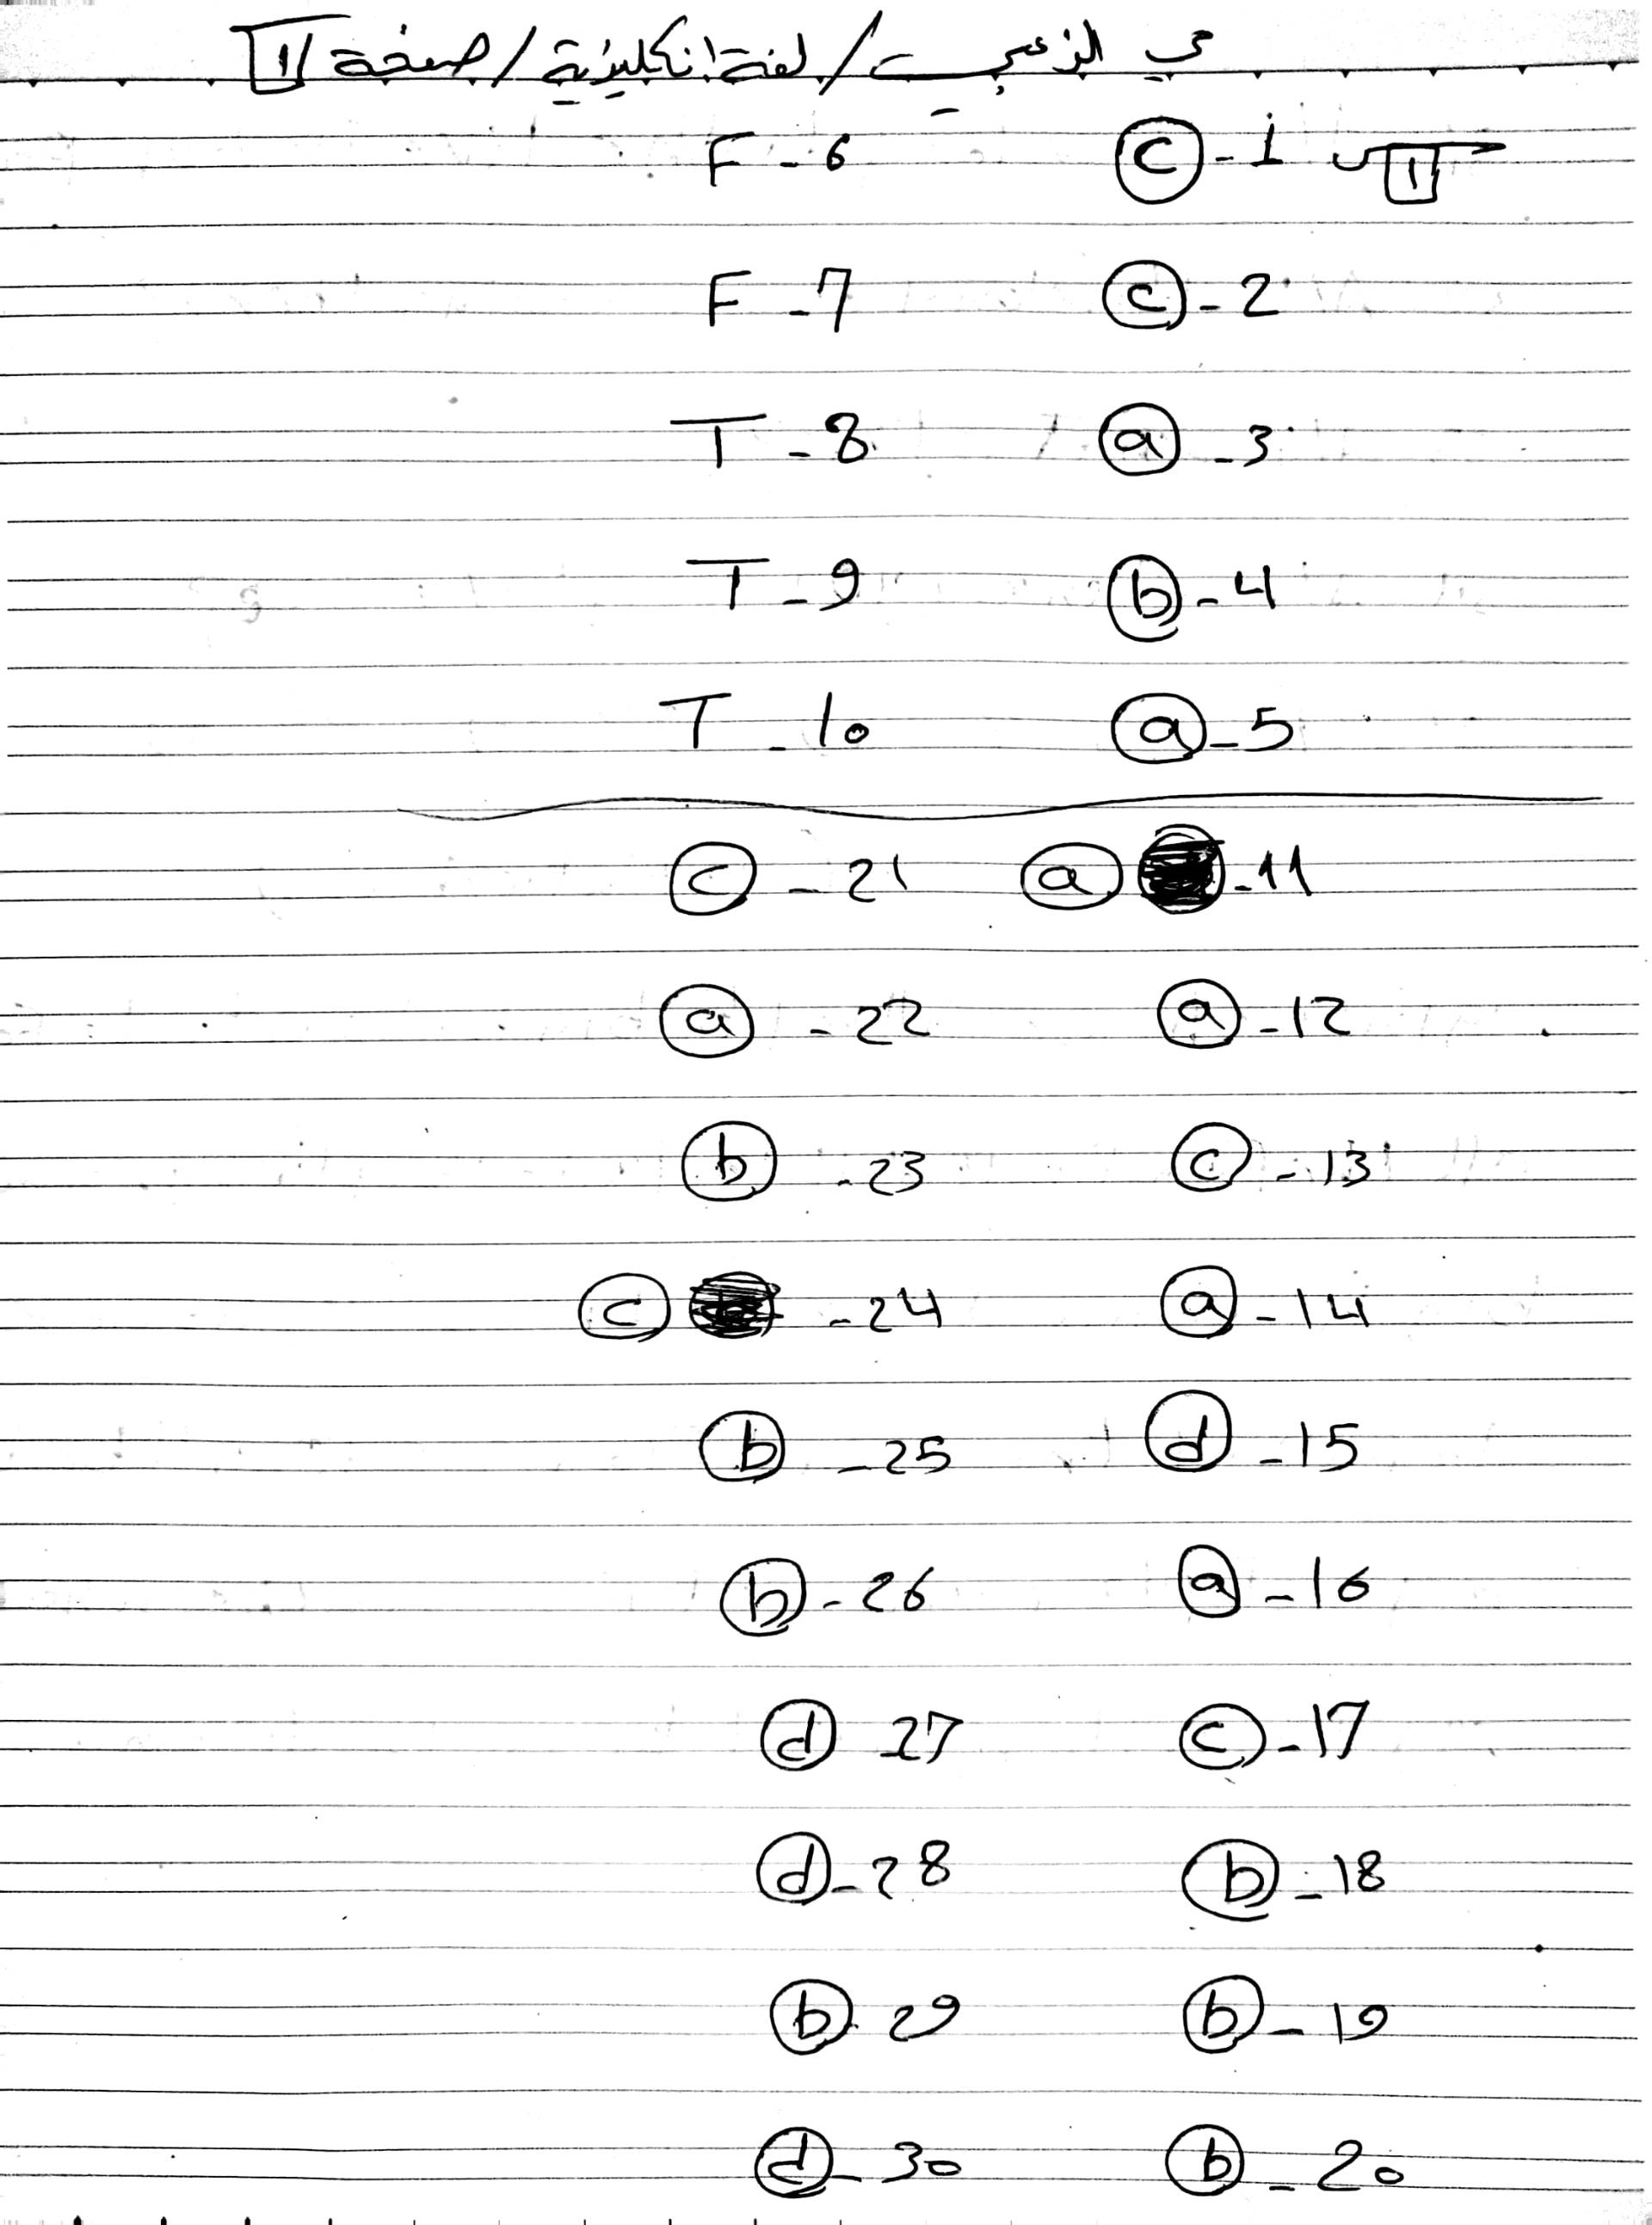 مي الزعبي / لغة انكليزية / صفحة 1
س1 1- c 6- F
2- c 7- F
3- a 8- T
4- b 9- T
5- a 10- T
11- a 21- c
12- a 22- a
13- c 23- b
14- a 24- c
15- d 25- b
16- a 26- b
17- c 27 d
18- b 28- d
19- b 29 b
20- b 30- d